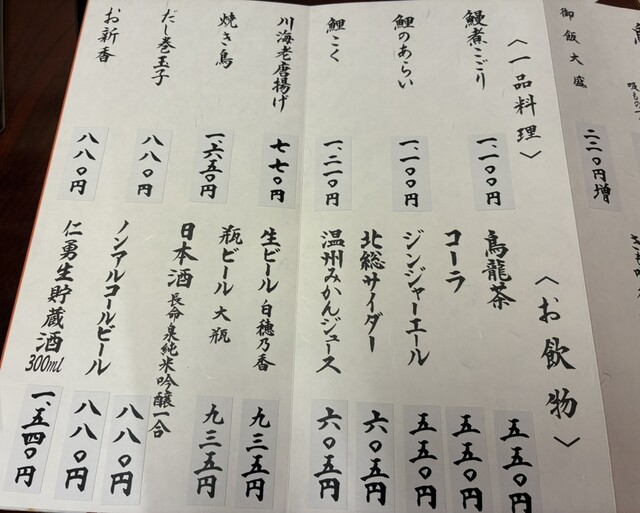 御飯大盛 二二〇円増
〈一品料理〉
鰻煮こごり 一、一〇〇円
鯉のあらい 一、一〇〇円
鯉こく 一、二一〇円
川海老唐揚げ 七七〇円
焼き鳥 一、六五〇円
だし巻玉子 八八〇円
お新香 八八〇円
〈お飲物〉
烏龍茶 五五〇円
コーラ 五五〇円
ジンジャーエール 五五〇円
北総サイダー 六〇五円
温州みかんジュース 六〇五円
生ビール 白穂乃香 九三五円
瓶ビール 大瓶 九三五円
日本酒 長命泉純米吟醸一合 八八〇円
ノンアルコールビール 八八〇円
仁勇生貯蔵酒300ml 一、五四〇円